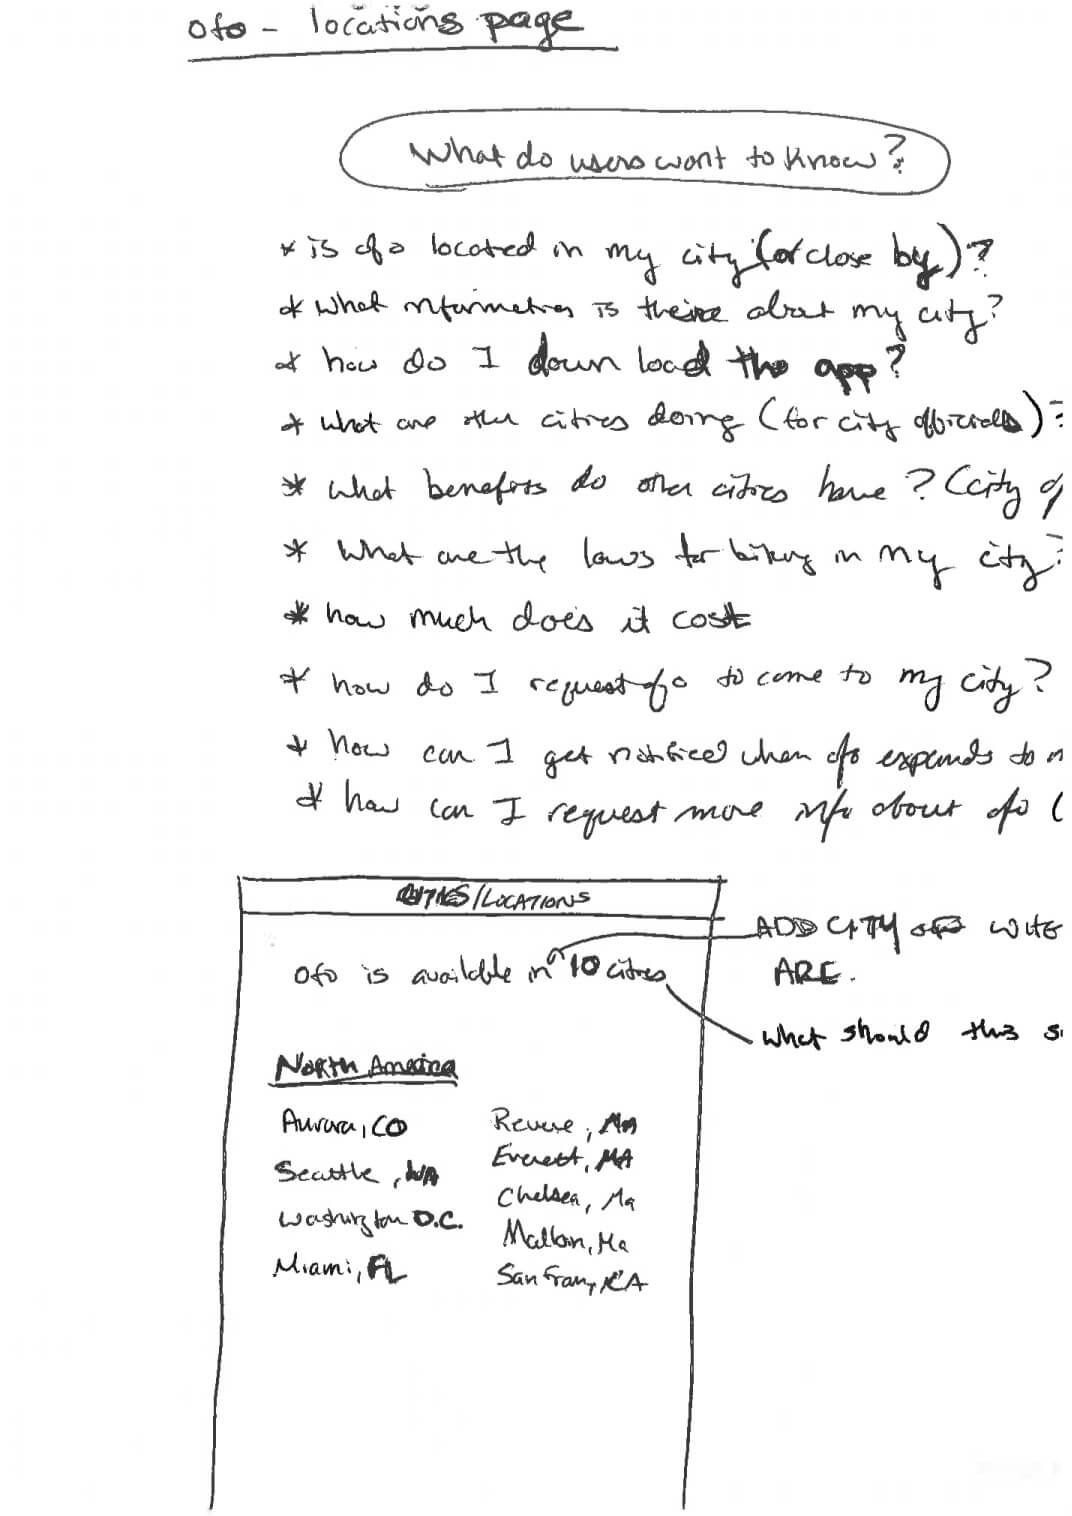 ofo - locations page
What do users want to know?
* is ofo located in my city (or close by)?
* what information is there about my city?
* how do I download the app?
* what are other cities doing (for city officials)?
* what benefits do other cities have? (city of
* what are the laws for biking in my city?
* how much does it cost
* how do I request ofo to come to my city?
* how can I get notified when ofo expands to m
* how can I request more info about ofo (
CITIES/LOCATIONS
ofo is available in 10 cities
ADD CITY
ARE.
what should this s
North America
Aurora, CO
Seattle, WA
Washington D.C.
Miami, FL
Revere, MA
Everett, MA
Chelsea, Ma
Malden, Ma
San Fran, CA